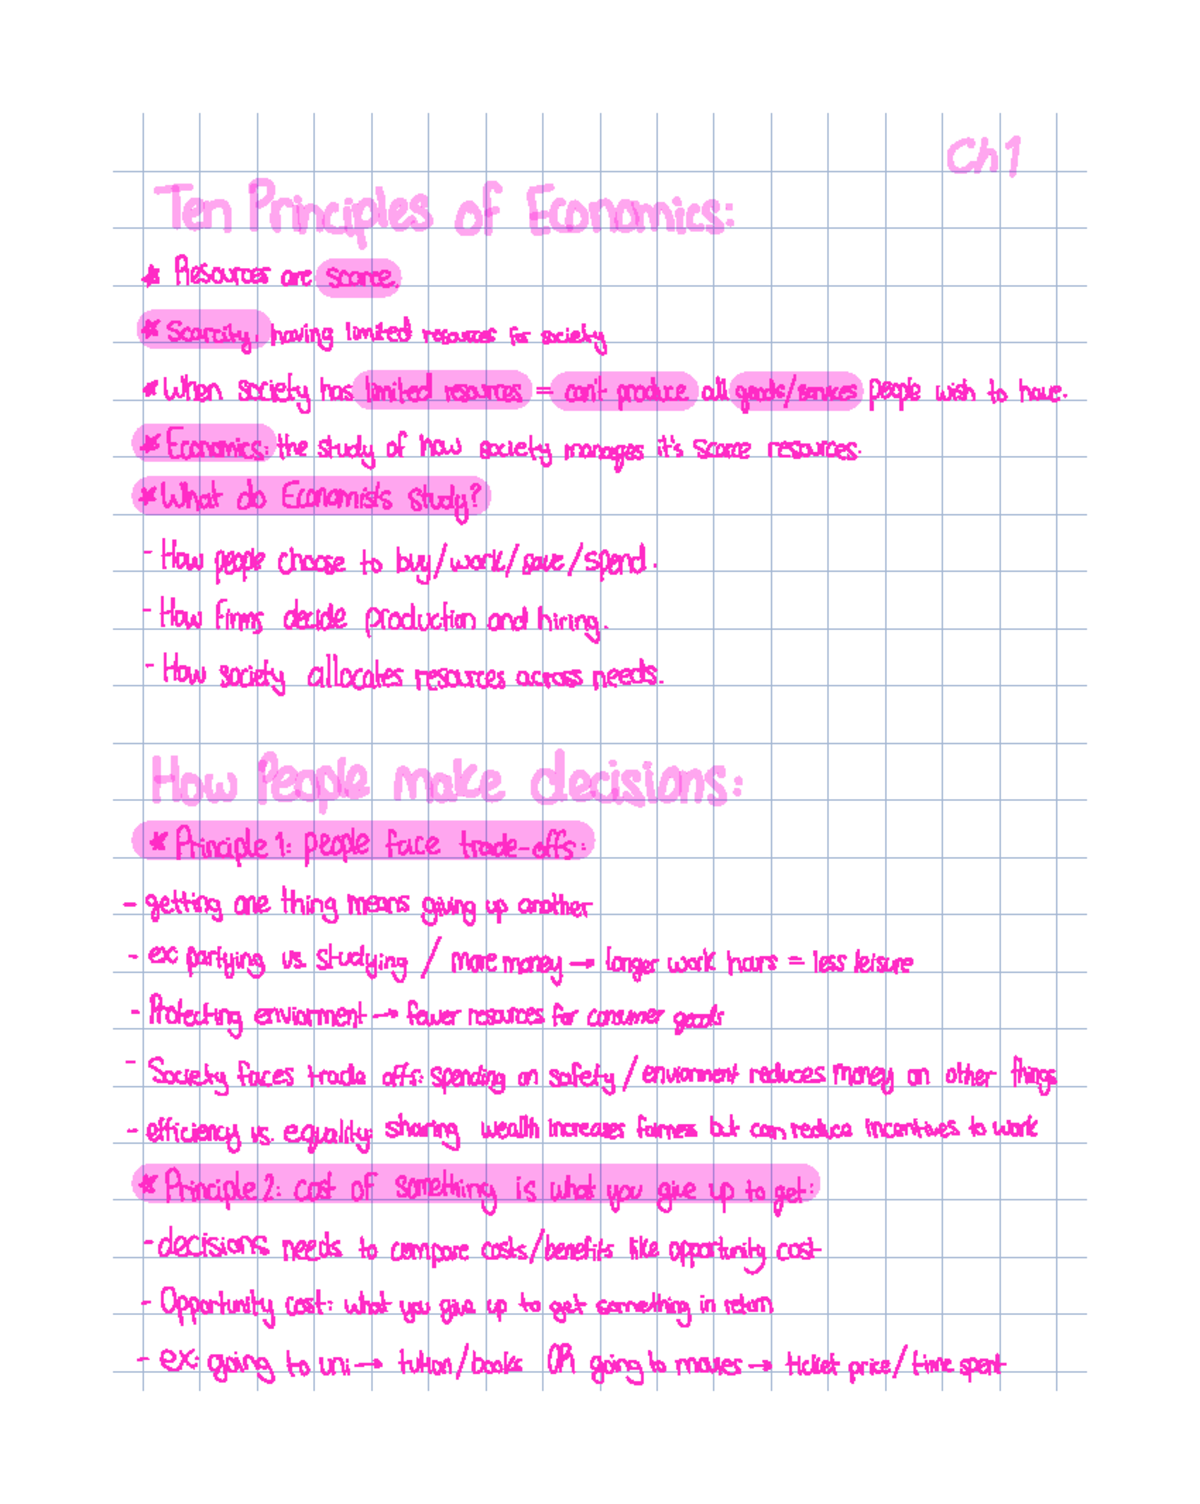 Ch 1
Ten Principles of Economics:
* Resources are scarce.
* Scarcity: having limited resources for society
* When society has limited resources = can't produce all goods/services people wish to have.
* Economics: the study of how society manages it's scarce resources.
* What do Economists study?
- How people choose to buy/work/save/spend.
- How firms decide production and hiring.
- How society allocates resources across needs.
How People make decisions:
* Principle 1: people face trade-offs:
- getting one thing means giving up another
- ex partying vs. studying / more money → longer work hours = less leisure
- Protecting enviorment → fewer resources for consumer goods
- Society faces trade offs: spending on safety/enviornment reduces money on other things
- efficiency vs. equality: sharing wealth increases fairness but can reduce incentives to work
* Principle 2: cost of something is what you give up to get:
- decisions needs to compare costs/benefits like opportunity cost
- Opportunity cost: what you give up to get something in return
- ex: going to uni → tution/books OR going to movies → ticket price/time spent